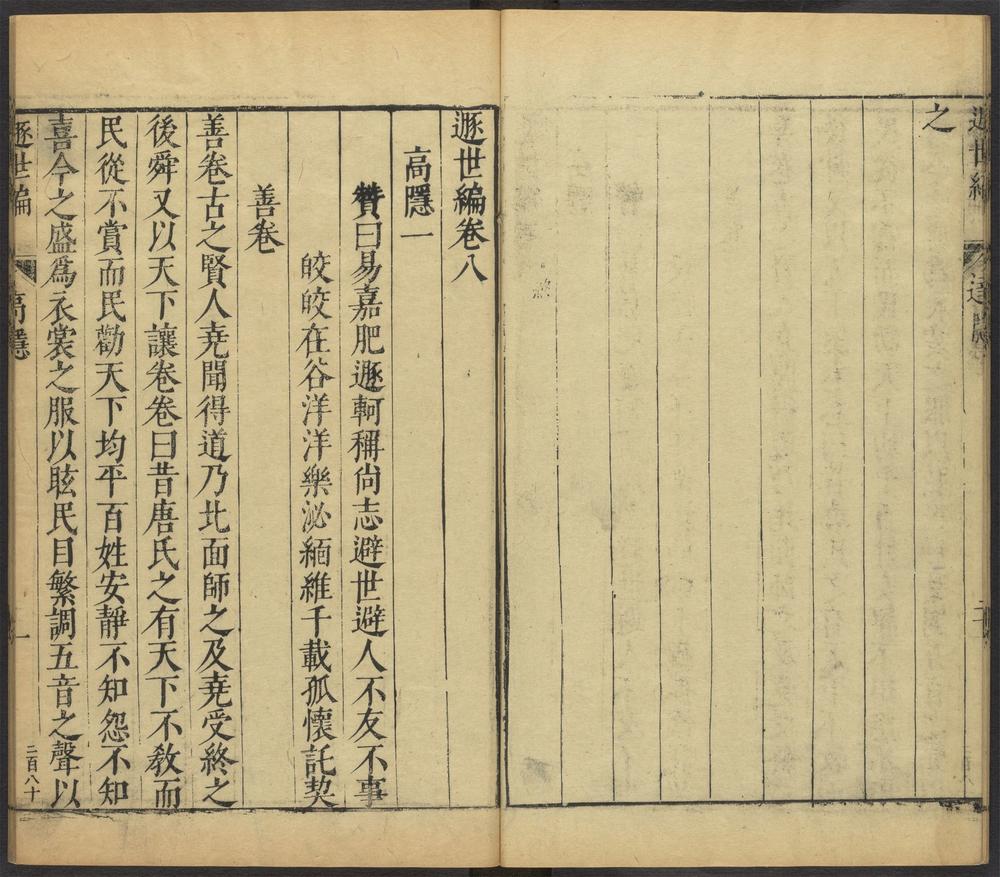 之
遯世編卷八
高隱一
贊曰易嘉肥遯軻稱尚志避世避人不友不事
皎皎在谷洋洋樂泌緬維千載孤懷託契
善卷
善卷古之賢人堯聞得道乃北面師之及堯受終之
後舜又以天下讓卷卷曰昔唐氏之有天下不敎而
民從不賞而民勸天下均平百姓安靜不知怨不知
喜今之盛爲衣裳之服以眩民目繁調五音之聲以
遯世編 高隱 一 二百八十